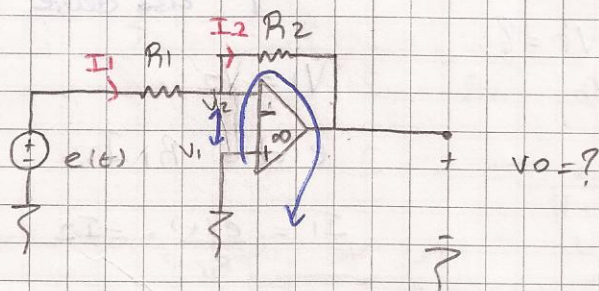 I1
R1
I2
R2
V2
V1
e(t)
+
-
-
+
∞
+
-
vo=?